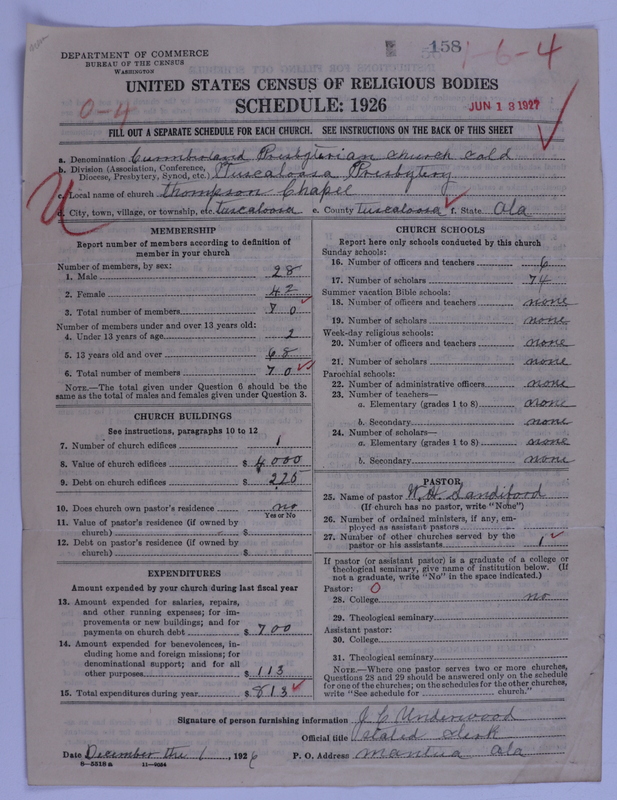 158
1-6-4
DEPARTMENT OF COMMERCE
BUREAU OF THE CENSUS
WASHINGTON
UNITED STATES CENSUS OF RELIGIOUS BODIES
SCHEDULE: 1926
0-4
JUN 13 1927
FILL OUT A SEPARATE SCHEDULE FOR EACH CHURCH. SEE INSTRUCTIONS ON THE BACK OF THIS SHEET
a. Denomination Cumberland Presbyterian church cold
b. Division (Association, Conference, Diocese, Presbytery, Synod, etc.) Tuscaloosa Presbytery
c. Local name of church Thompson Chapel
d. City, town, village, or township, etc. tuscaloosa e. County tuscaloosa f. State Ala
MEMBERSHIP
Report number of members according to definition of
member in your church
Number of members, by sex:
1. Male 28
2. Female 42
3. Total number of members 70
Number of members under and over 13 years old:
4. Under 13 years of age 2
5. 13 years old and over 68
6. Total number of members 70
NOTE.—The total given under Question 6 should be
same as the total of males and females given under Question 3.
CHURCH BUILDINGS
See instructions, paragraphs 10 to 12
7. Number of church edifices 1
8. Value of church edifices $ 4,000
9. Debt on church edifices $ 225
10. Does church own pastor's residence no
Yes or No
11. Value of pastor's residence (if owned by
church) $
12. Debt on pastor's residence (if owned by
church) $
EXPENDITURES
Amount expended by your church during last fiscal year
13. Amount expended for salaries, repairs,
and other running expenses; for im-
provements or new buildings; and for
payments on church debt $ 700
14. Amount expended for benevolences, in-
cluding home and foreign missions; for
denominational support; and for all
other purposes $ 113
15. Total expenditures during year $ 813
CHURCH SCHOOLS
Report here only schools conducted by this church
Sunday schools:
16. Number of officers and teachers 6
17. Number of scholars 74
Summer vacation Bible schools:
18. Number of officers and teachers none
19. Number of scholars none
Week-day religious schools:
20. Number of officers and teachers none
21. Number of scholars none
Parochial schools:
22. Number of administrative officers none
23. Number of teachers—
a. Elementary (grades 1 to 8) none
b. Secondary none
24. Number of scholars—
a. Elementary (grades 1 to 8) none
b. Secondary none
PASTOR
25. Name of pastor W. H.
(If church has no pastor, write "None")
26. Number of ordained ministers, if any, em-
ployed as assistant pastors
27. Number of other churches served by the
pastor or his assistants 1
If pastor (or assistant pastor) is a graduate of a college or
theological seminary, give name of institution below. (If
not a graduate, write "No" in the space indicated.)
Pastor: 0
28. College no
29. Theological seminary
Assistant pastor:
30. College
31. Theological seminary
NOTE.—Where one pastor serves two or more churches,
Questions 28 and 29 should be answered only on the schedule
for one of the churches; on the schedules for the other churches,
write "See schedule for church."
Signature of person furnishing information J. C. Underwood
Official title Stated Clerk
Date December the 1, 1926 P. O. Address Mantua Ala
8-5818a 11-9024